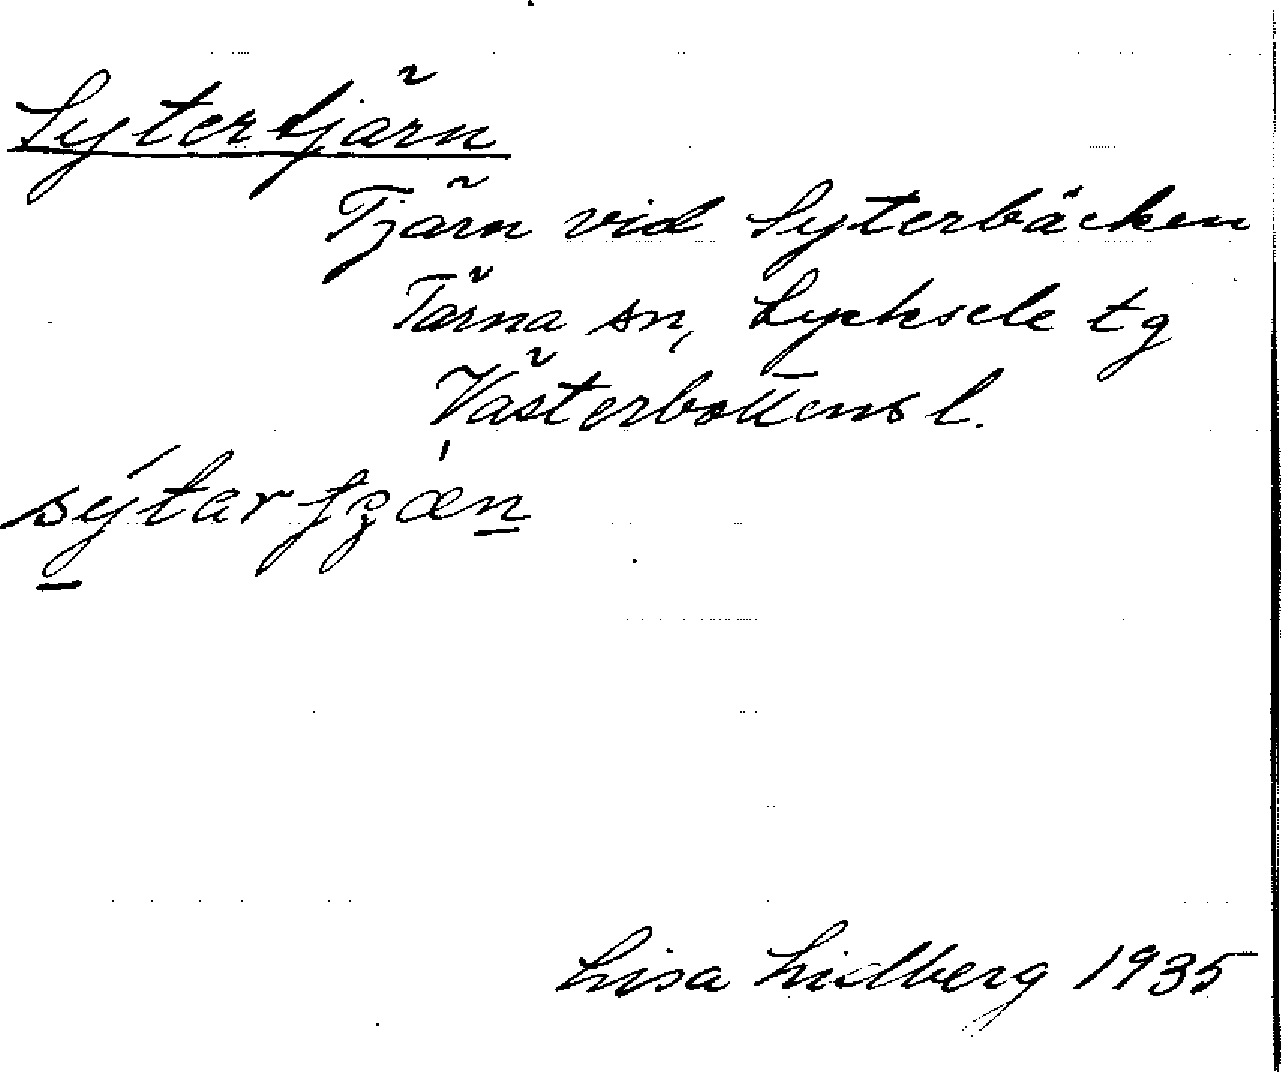 Sytertjärn
Tjärn vid Syterbäcken
Tärna sn, Lycksele tg
Västerbottens l.
sýtar
Lisa Lidberg 1935